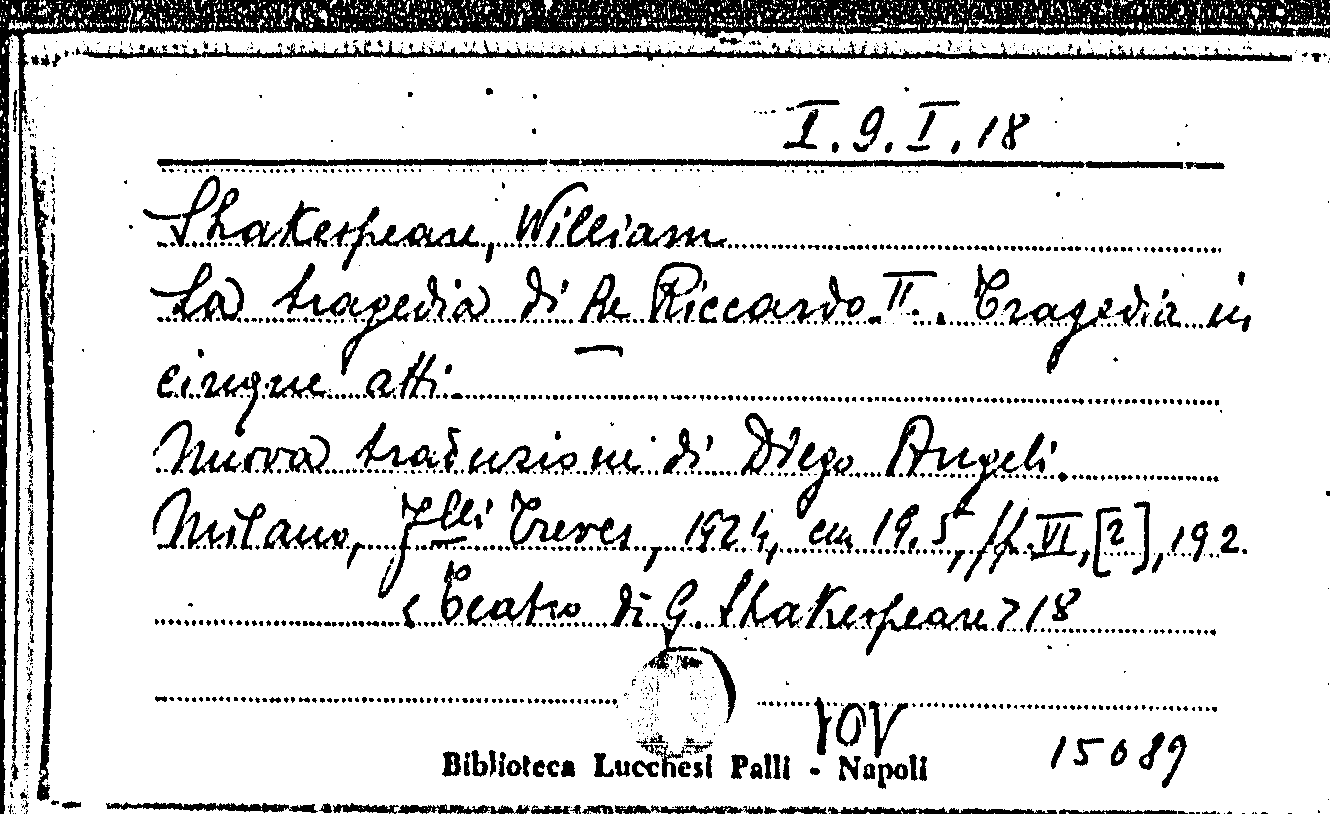 I.9.I.18
Shakespeare, William
La tragedia di Re Riccardo II. Tragedia in
cinque atti.
Nuova traduzione di Diego Angeli.
Milano, F.lli Treves, 1924, cm 19.5, pp. VI, [2], 192.
<Teatro di G. Shakespeare> 18
Biblioteca Lucchesi Palli - Napoli
15089